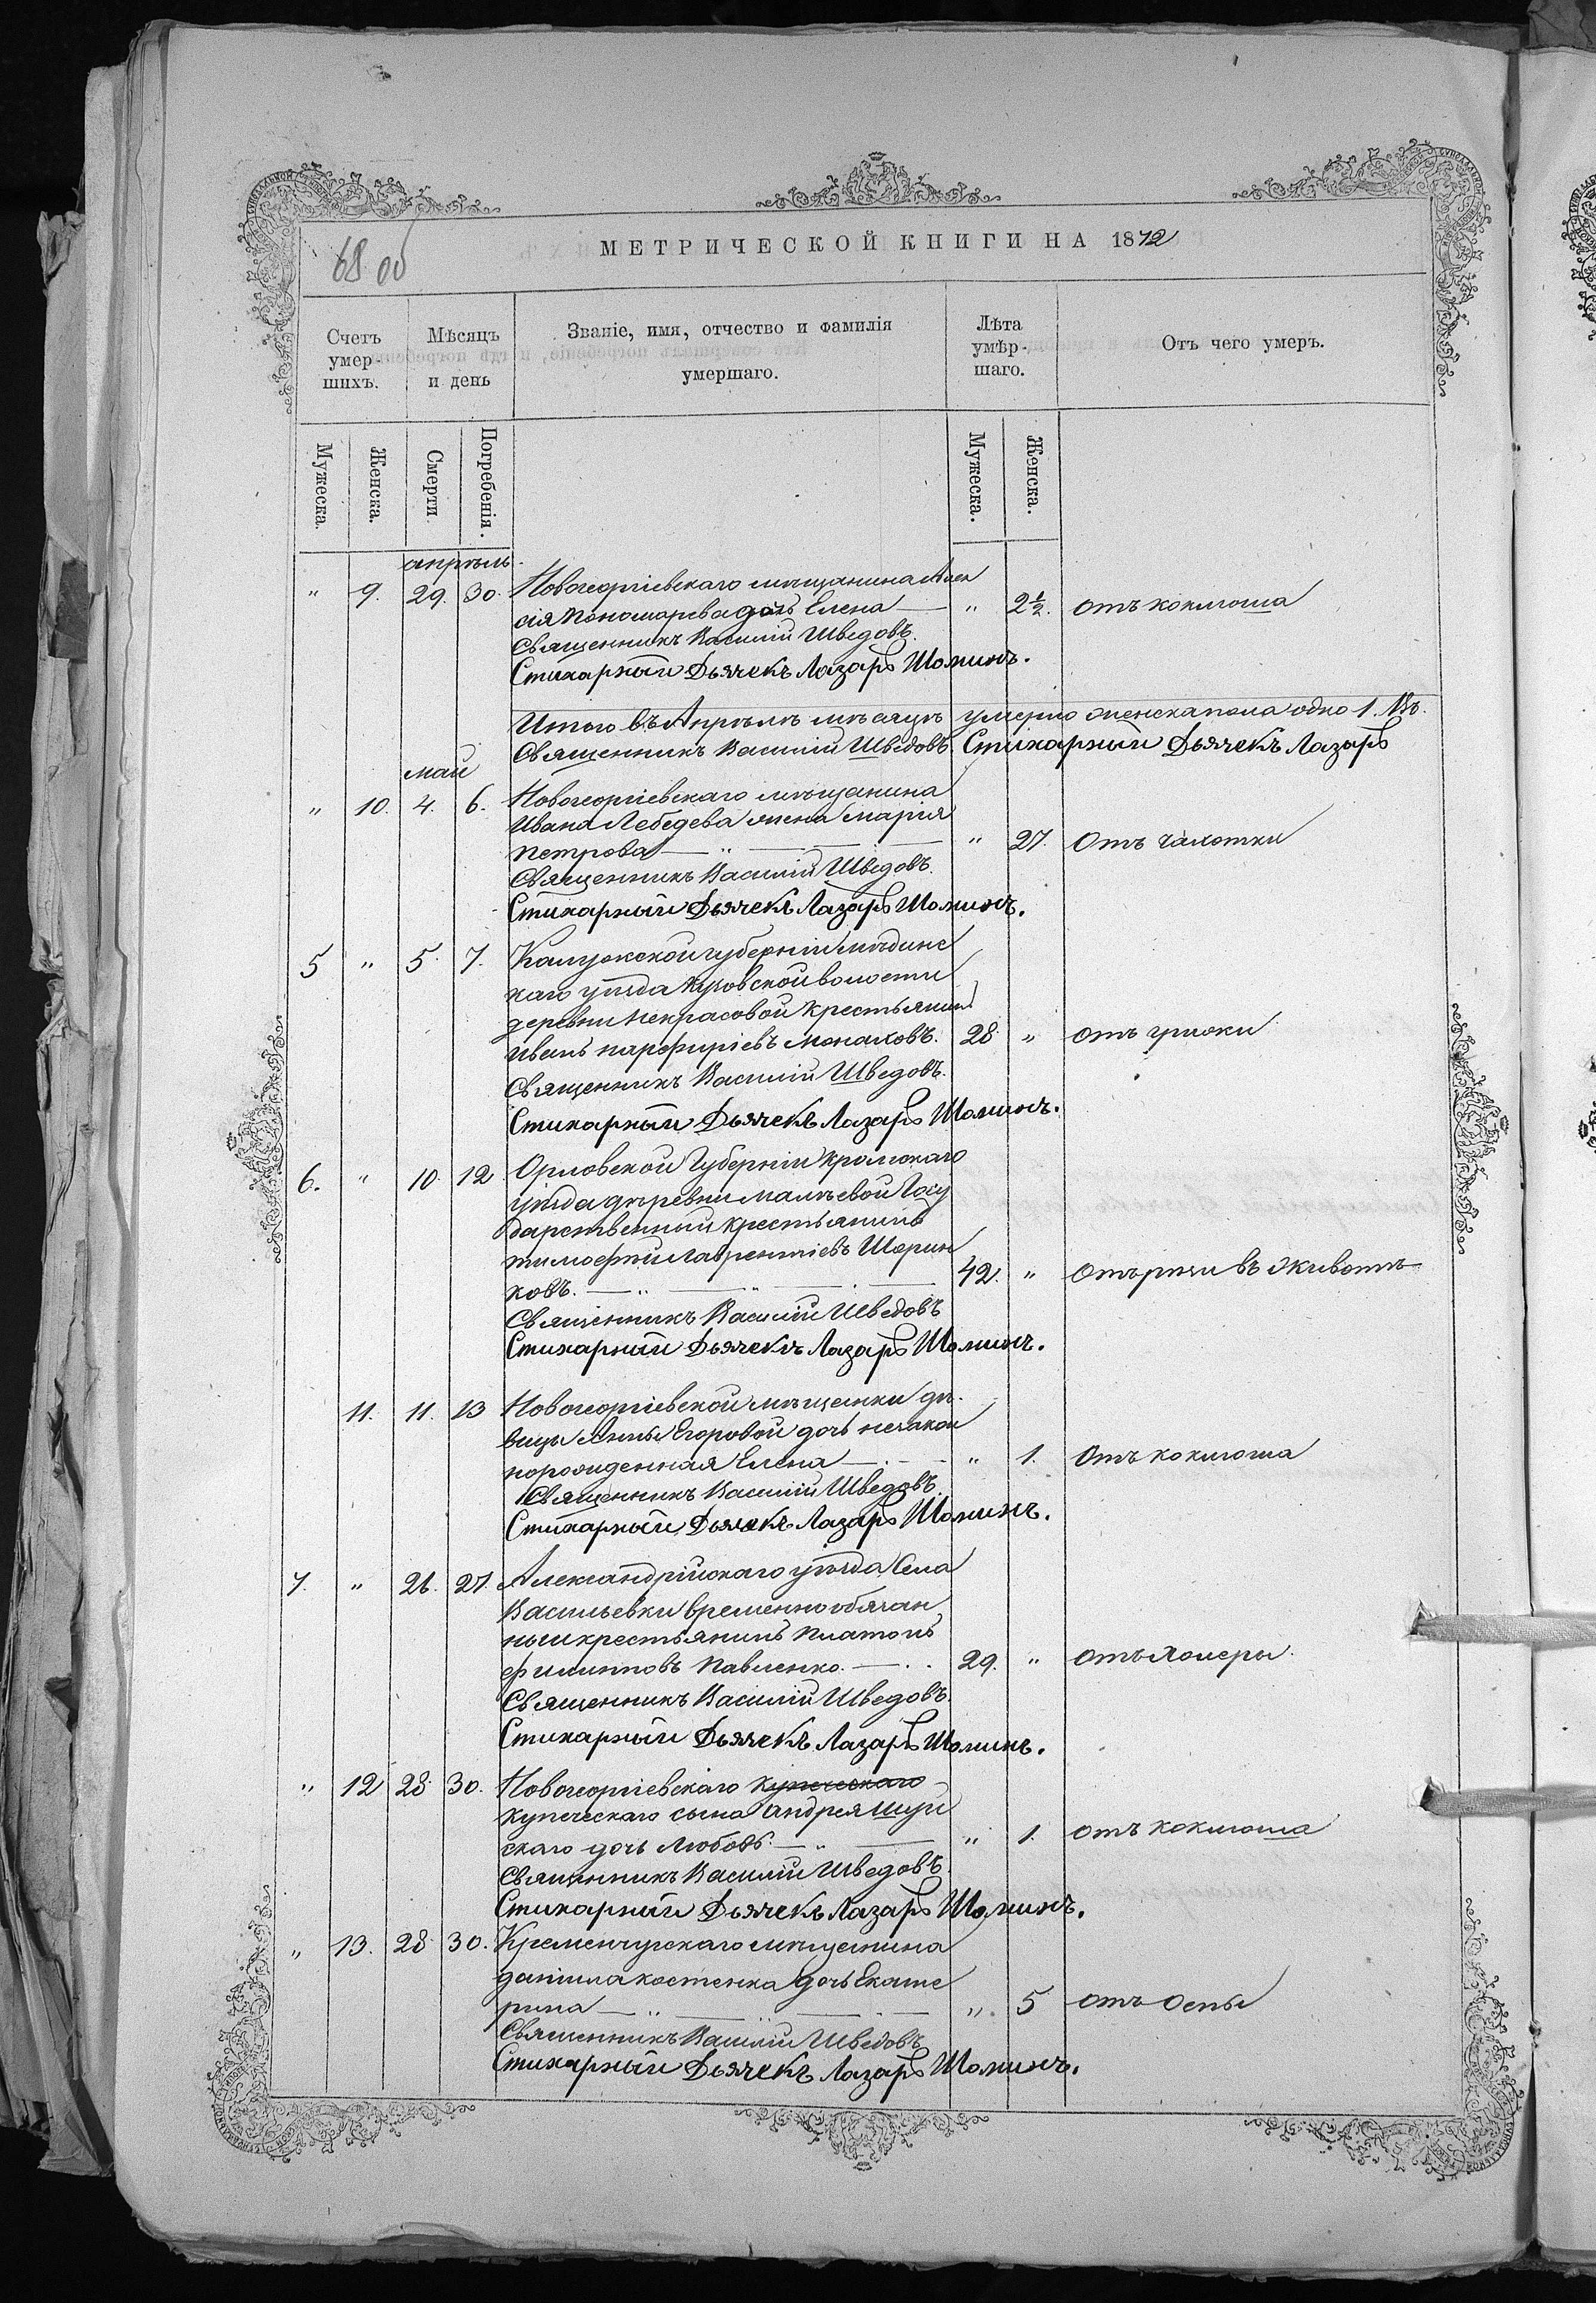 68 об
МЕТРИЧЕСКОЙ КНИГИ НА 1872
Счетъ умер-шихъ.
Мѣсяцъ и день
Званіе, имя, отчество и фамилія умершаго.
Лѣта умѣр-шаго.
Отъ чего умеръ.
Мужеска. Женска. Смерти. Погребенія. Мужеска. Женска.
апрѣль.
" 9. 29. 30. Новогеоргіевскаго мѣщанина Алек
сія Пономарева дочь Елена — " 2½. отъ коклюша
Священникъ Василій Шведовъ.
Стихарный Дьячекъ Лазарь Шоминъ.
Итого въ Апрѣлѣ мѣсяцѣ умерло женска пола одно 1.
Священникъ Василій Шведовъ Стихарный Дьячекъ Лазарь
май
" 10. 4. 6. Новогеоргіевскаго мѣщанина
Ивана Лебедева жена Марія
Петрова — " — " 27. Отъ чахотки
Священникъ Василій Шведовъ.
Стихарный Дьячекъ Лазарь Шоминъ.
5 " 5. 7. Калужской губерніи Мѣдынс
каго уѣзда волости
деревни Некрасовой крестьянинъ
Иванъ Парфиріевъ Монаховъ. 28 " отъ грижи
Священникъ Василій Шведовъ.
Стихарный Дьячекъ Лазарь Шоминъ.
6. " 10. 12 Орловской Губерніи Кромскаго
уѣзда дѣревни Госу
дарственный крестьянинъ
тимофѣй Лаврентіевъ Шорин
ковъ. — " — " — 42. " Отъ рѣзи въ животѣ
Священникъ Василій Шведовъ
Стихарный Дьячекъ Лазарь Шоминъ.
11. 11. 13 Новогеоргіевской мѣщанки дѣ-
вицы Анны Егоровой дочь незакон
норожденная Елена — " 1. Отъ коклюша
Священникъ Василій Шведовъ.
Стихарный Дьячекъ Лазарь Шоминъ.
7. " 26. 27. Александрійскаго уѣзда Села
Васильевки временно обязан
ный крестьянинъ Платонъ
филиповъ Павленко. — 29. " отъ холеры.
Священникъ Василій Шведовъ.
Стихарный Дьячекъ Лазарь Шоминъ.
" 12 28 30. Новогеоргіевскаго купческаго
купческаго сына Андрея Шуй
скаго дочь Любовь. — " — " 1. отъ коклюша
Священникъ Василій Шведовъ.
Стихарный Дьячекъ Лазарь Шоминъ.
" 13. 28. 30. Кременчугскаго мѣщанина
даніила костенка дочь Екате
рина — " — " 5 отъ Оспы
Священникъ Василій Шведовъ
Стихарный Дьячекъ Лазарь Шоминъ.